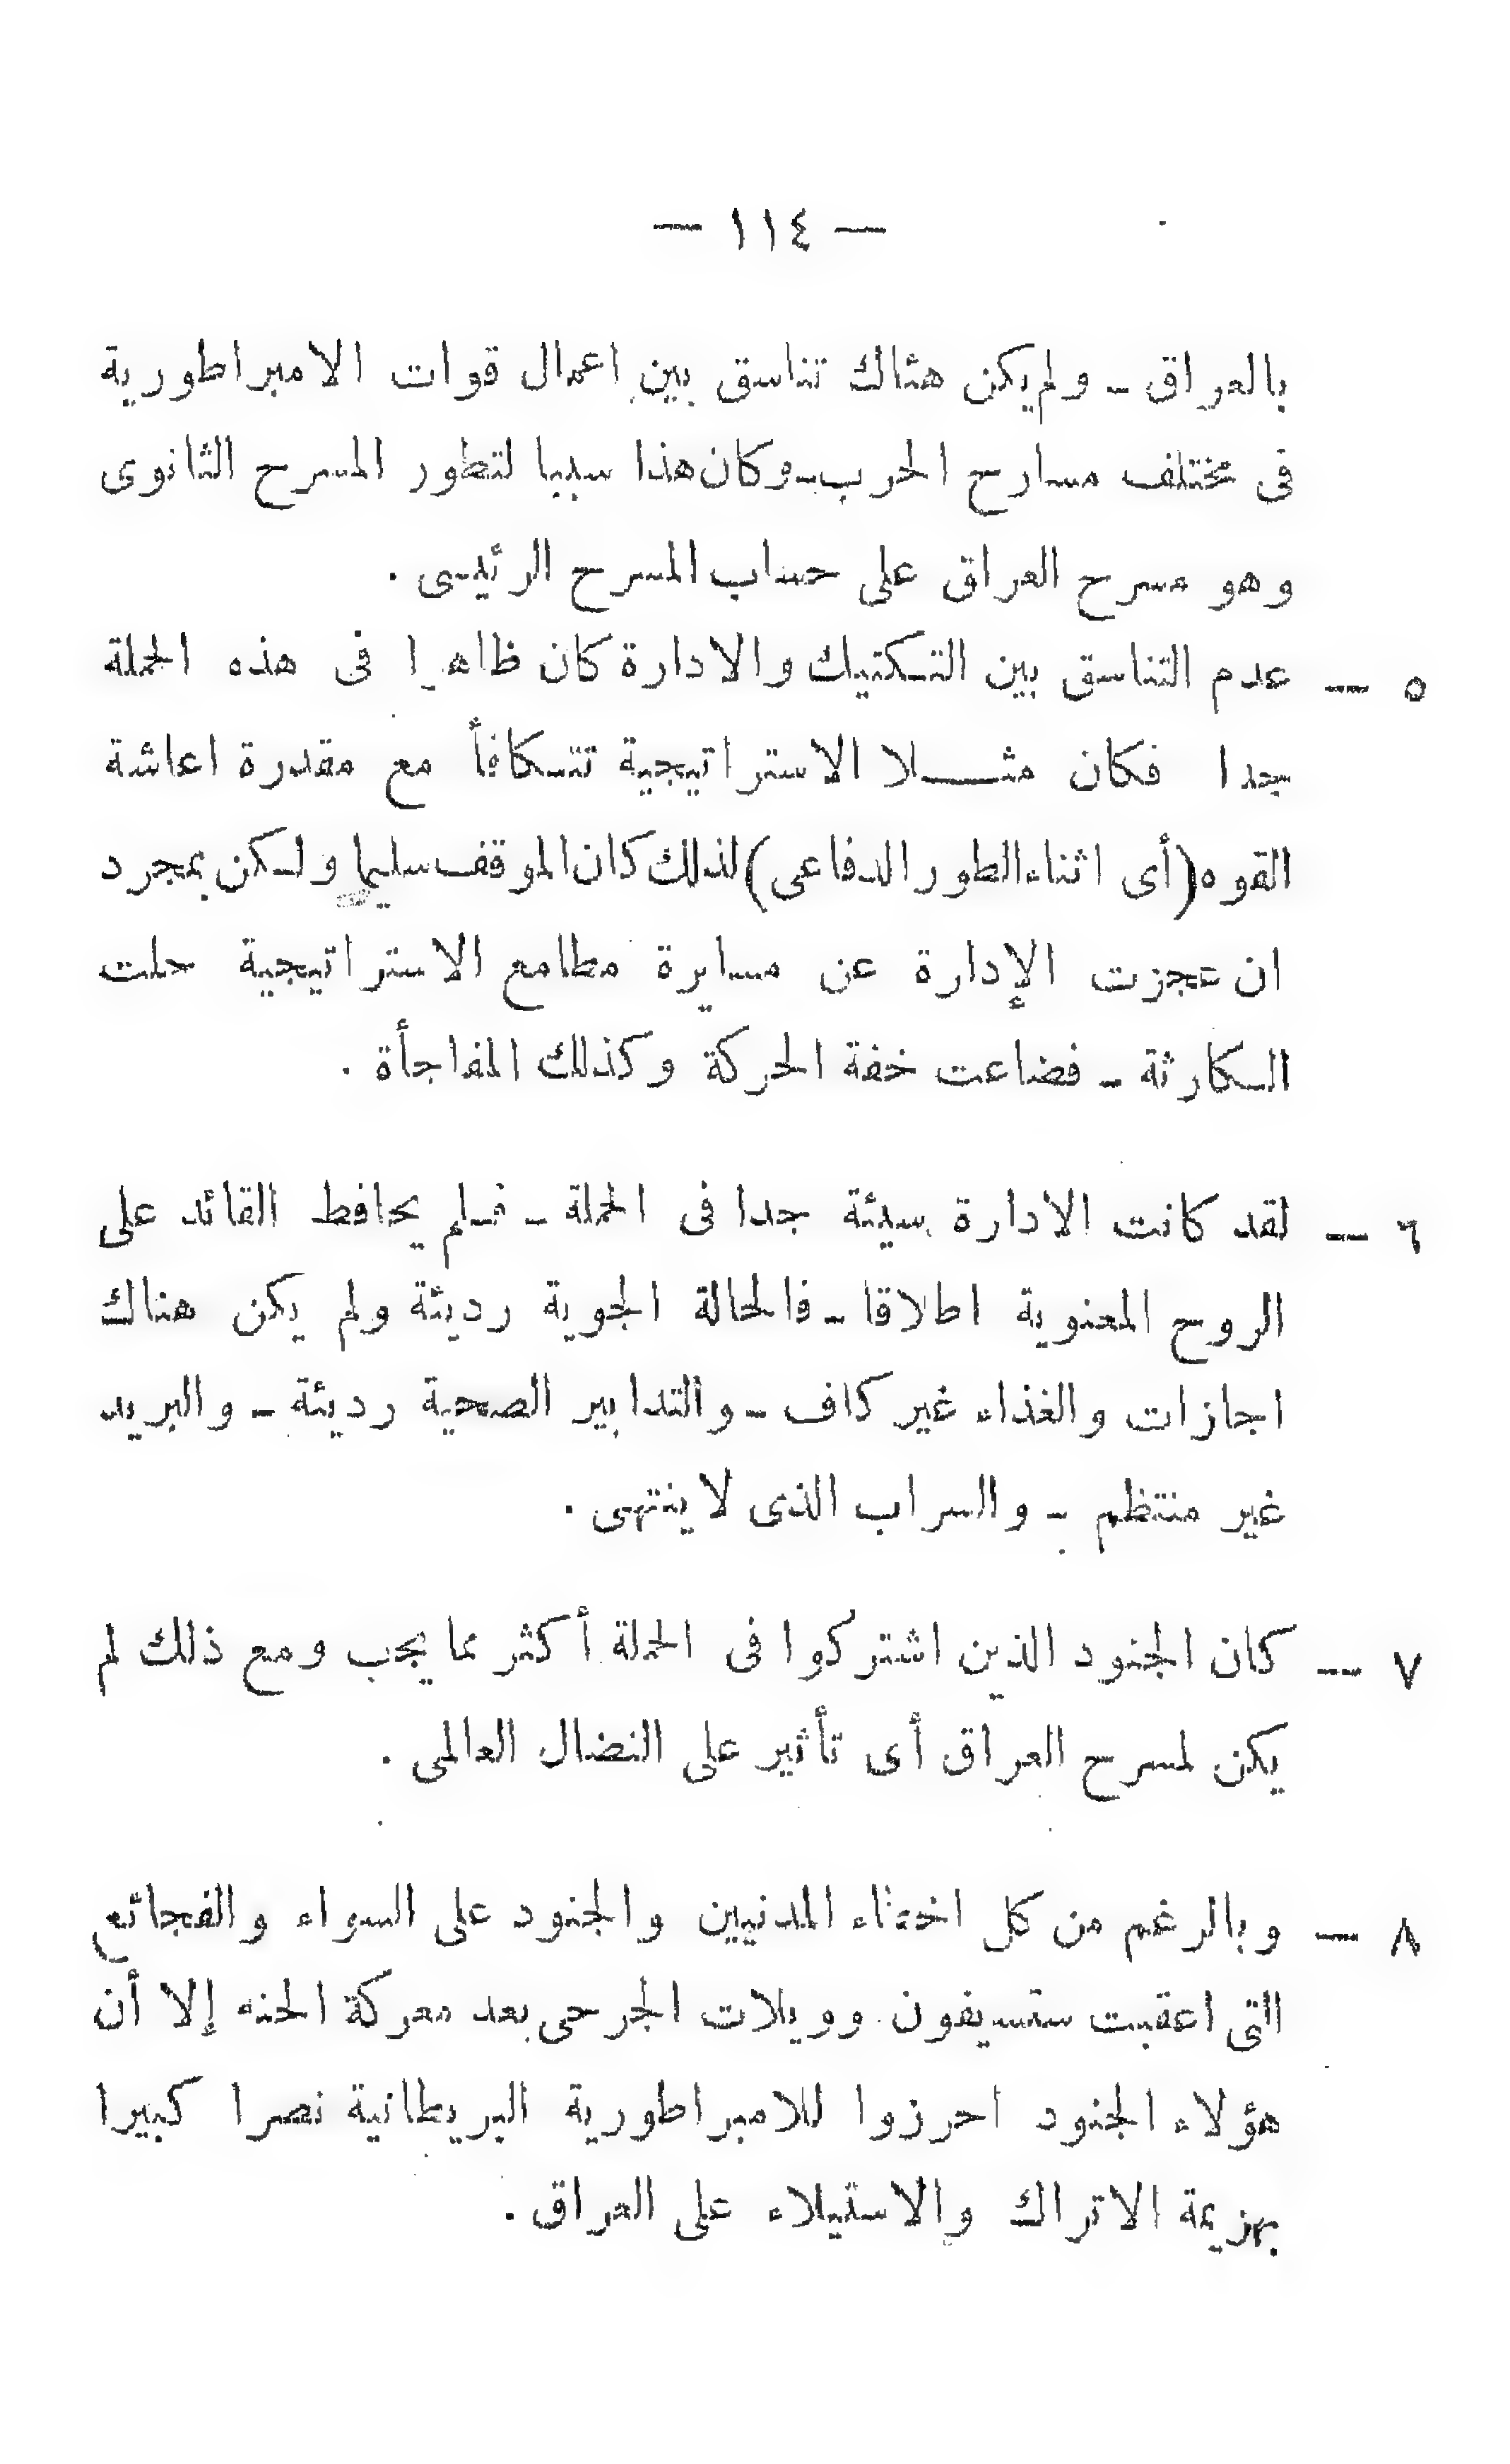 — ١١٤ —
بالعراق - ولم يكن هناك تناسق بين اعمال قوات الامبراطورية
فى مختلف مسارح الحرب - وكان هذا سببا لتطور المسرح الثانوى
وهو مسرح العراق على حساب المسرح الرئيسى .
٥ — عدم التناسق بين التكتيك والادارة كان ظاهرا فى هذه الحملة
جدا فكان مثلا الاستراتيجية تتكافأ مع مقدرة اعاشة
القوه (أى اثناء الطور الدفاعى) لذلك كان الموقف سليما ولكن بمجرد
ان عجزت الإدارة عن مسايرة مطامع الاستراتيجية حلت
الكارثة - فضاعت خفة الحركة وكذلك المفاجأة .
٦ — لقد كانت الادارة سيئة جدا فى الحملة - فلم يحافظ القائد على
الروح المعنوية اطلاقا - فالحالة الجوية رديئة ولم يكن هناك
اجازات والغذاء غير كاف - والتدابير الصحية رديئة - والبريد
غير منتظم - والسراب الذى لا ينتهى .
٧ — كان الجنود الذين اشتركوا فى الحملة أكثر مما يجب ومع ذلك لم
يكن لمسرح العراق أى تأثير على النضال العالمى .
٨ — وبالرغم من كل اخطاء المدنيين والجنود على السواء والفجائع
التى اعقبت ستسيفون وويلات الجرحى بعد معركة الحنه إلا أن
هؤلاء الجنود احرزوا للامبراطورية البريطانية نصرا كبيرا
بهزيمة الاتراك والاستيلاء على العراق .